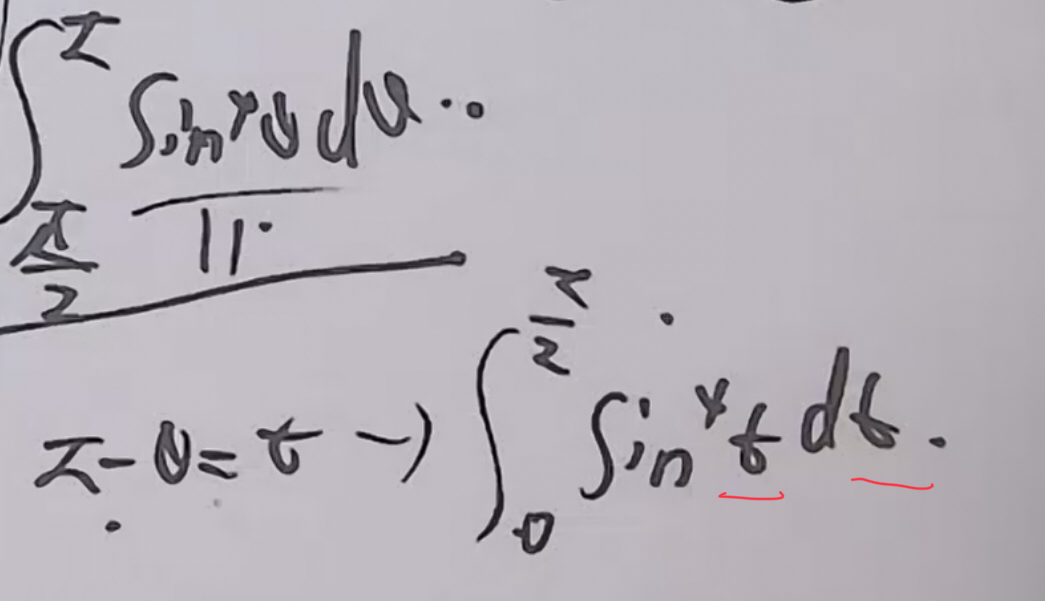 ∫_{π/2}^{π} sin⁴θ dθ ..
||
π - θ = t → ∫_{0}^{π/2} sin⁴ t dt.